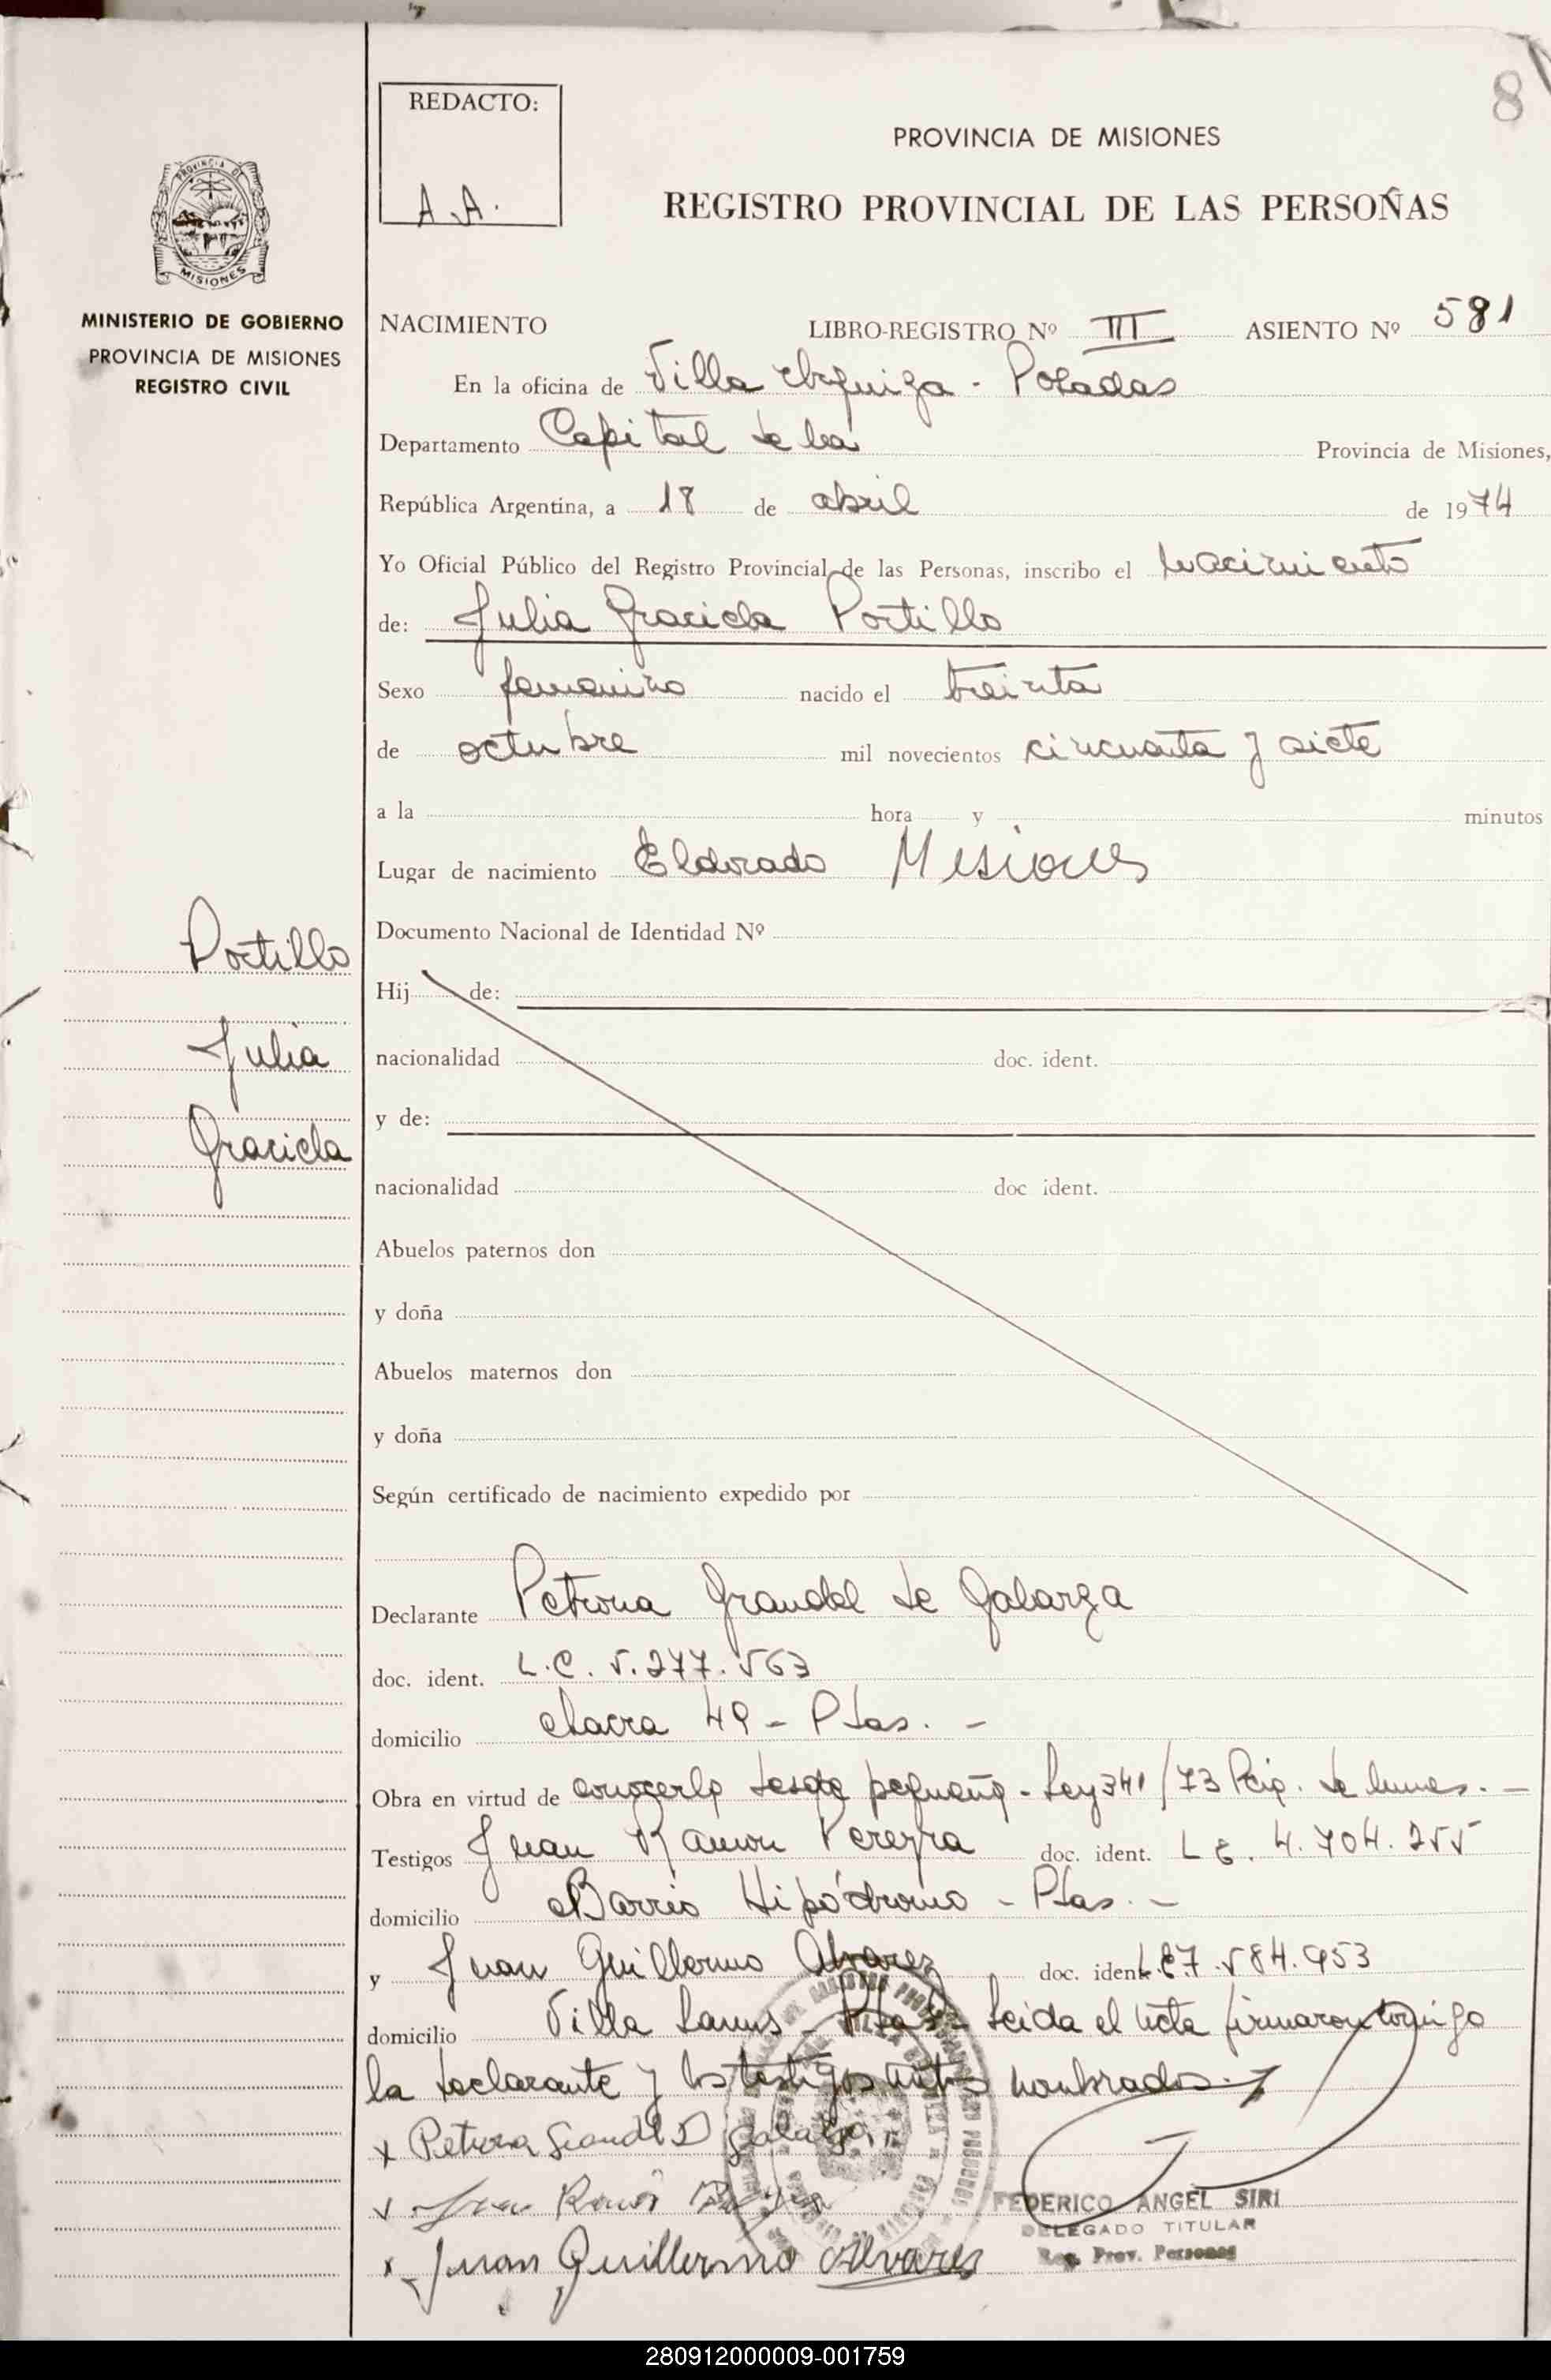 8
REDACTO:
A.A.
PROVINCIA DE MISIONES
REGISTRO PROVINCIAL DE LAS PERSOÑAS
PROVINCIA DE
MISIONES
MINISTERIO DE GOBIERNO
PROVINCIA DE MISIONES
REGISTRO CIVIL
NACIMIENTO LIBRO-REGISTRO Nº III ASIENTO Nº 581
En la oficina de Villa Urquiza - Posadas
Departamento Capital de la Provincia de Misiones,
República Argentina, a 18 de abril de 1974
Yo Oficial Público del Registro Provincial de las Personas, inscribo el nacimiento
de: Julia Graciela Portillo
Sexo femenino nacido el treinta
de octubre mil novecientos cincuenta y siete
a la hora y minutos
Lugar de nacimiento Eldorado Misiones
Documento Nacional de Identidad Nº
Portillo
Julia
Graciela
Hij de:
nacionalidad doc. ident.
y de:
nacionalidad doc ident.
Abuelos paternos don
y doña
Abuelos maternos don
y doña
Según certificado de nacimiento expedido por
Declarante Petrona Grandel de Galarza
doc. ident. L.C. 5.277.563
domicilio chacra 49 - Pdas. -
Obra en virtud de conocerla desde pequeña - Ley 341/73
Testigos Juan Ramon Pereyra doc. ident. L E. 4.704.255
domicilio Barrio Hipódromo - Pdas. -
y Juan Guillermo Alvarez doc. ident. L.E 7.584.953
domicilio Villa Lanus - Pdas - Leida el acta firmaron conmigo
la declarante y los testigos antes nombrados.
x Petrona Grandel D Galarza
x Juan Ramón
x Juan Guillermo Alvares
FEDERICO ANGEL SIRI
DELEGADO TITULAR
Reg. Prov. Personas
280912000009-001759